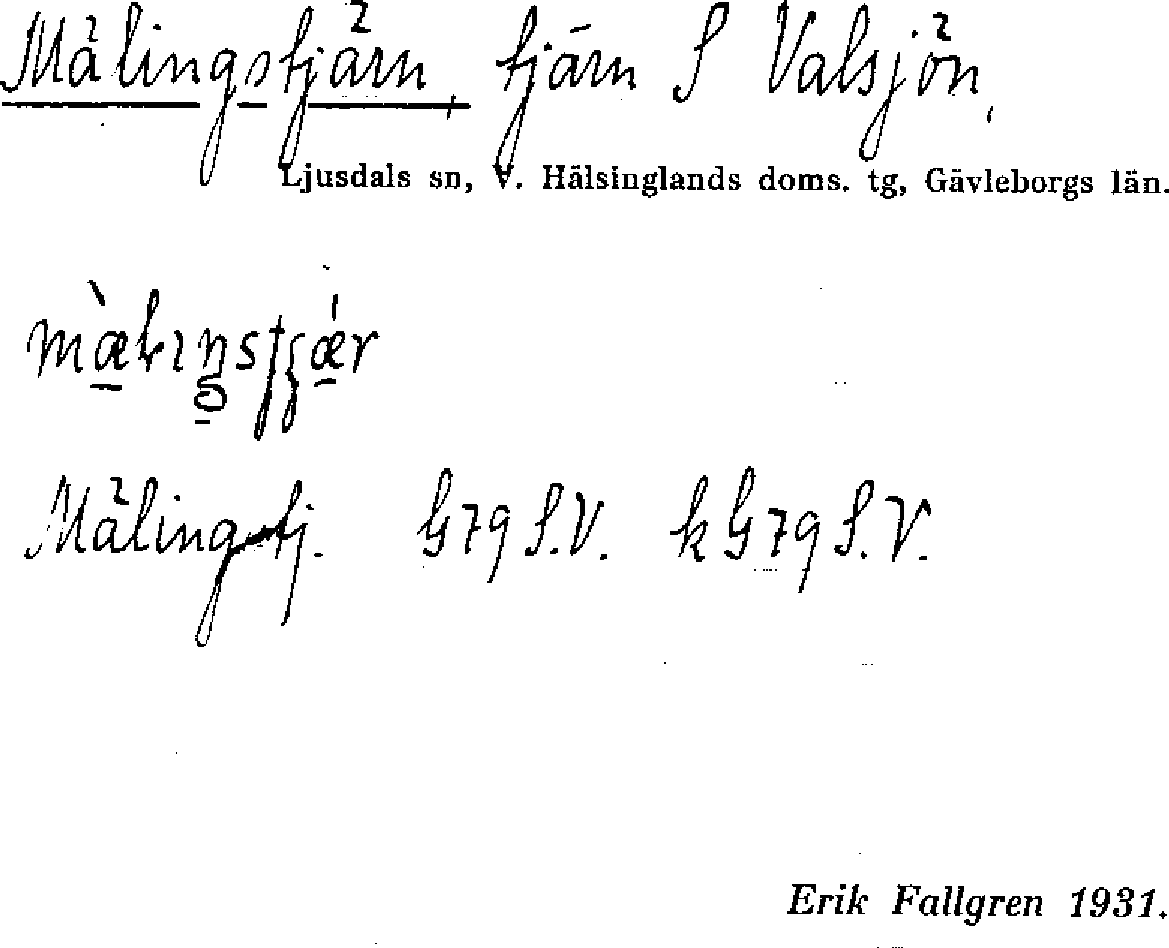 Mälingstjärn, tjärn S Valsjön,
Ljusdals sn, V. Hälsinglands doms. tg, Gävleborgs län.
Mälingstj. G 79 S.V. k G 79 S.V.
Erik Fallgren 1931.